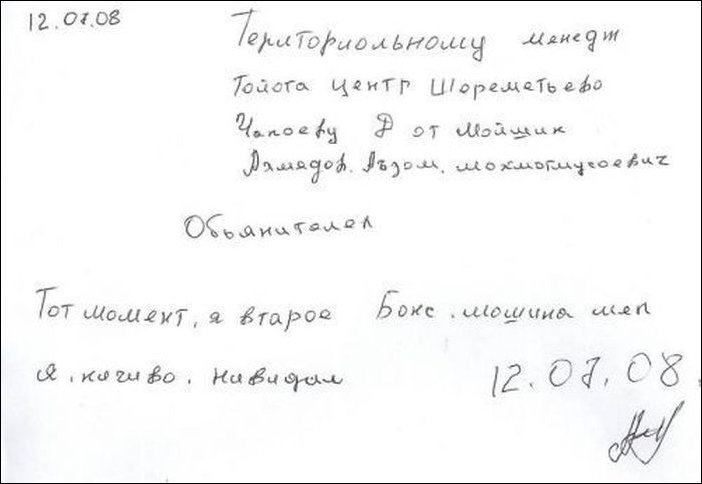 12.07.08
Териториольному менедж
Тойота центр Шореметьево
Чапоеву Д от Мойшик
Ахмадов. Аъзом. мохмотмусоевич
Объянителел
Тот момент, я второе Бокс. мошина меп
я. ничиво. Нивидал
12.07.08